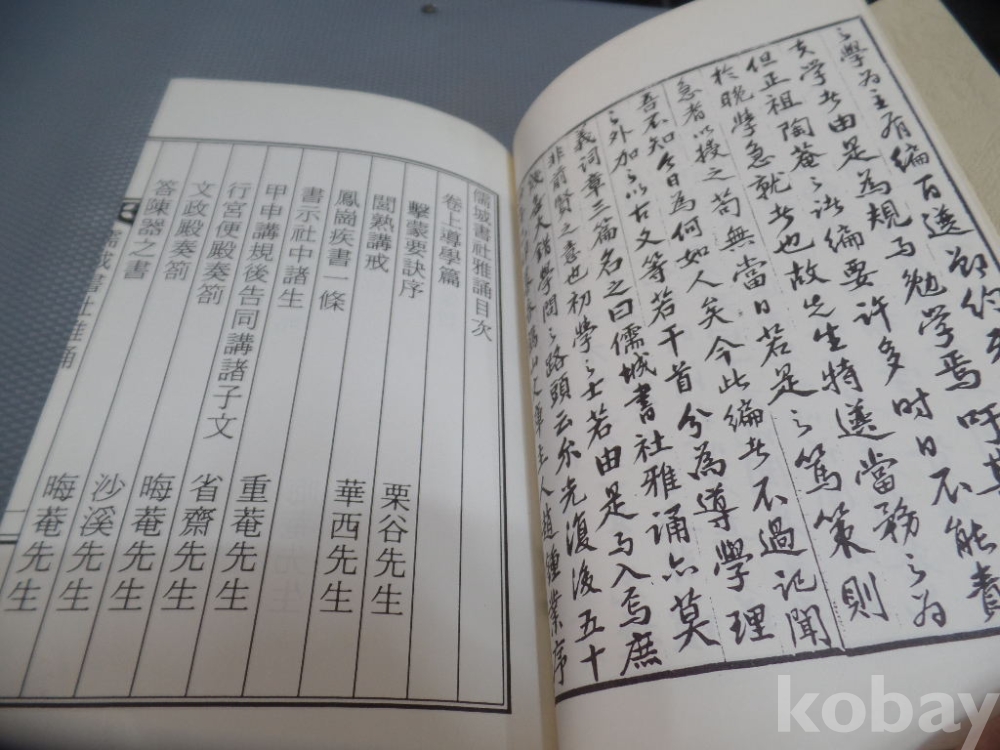 之學為主有編百選
學者由是為規而勉學焉吁其
但正祖陶菴之諸編要許多時日不能費
於晚學急就者也故先生特選當務之為
急者以授之苟無當日若是之篤策則
吾不知今日為何如人矣今此編者不過記聞
之外加之以古文等若干首分為導學理
義詞章三篇名之曰儒城書社雅誦亦莫
非前賢之意也初學之士若由是而入焉庶
學問之路頭云尔光復後五十
主人趙鍾業序
儒城書社雅誦目次
卷上導學篇
擊蒙要訣序 栗谷先生
閭熟講戒
鳳崗疾書一條 華西先生
書示社中諸生
甲申講規後告同講諸子文 重菴先生
行宮便殿奏箚 省齋先生
文政殿奏箚 晦菴先生
答陳器之書 沙溪先生
晦菴先生
儒城書社雅誦
kobay